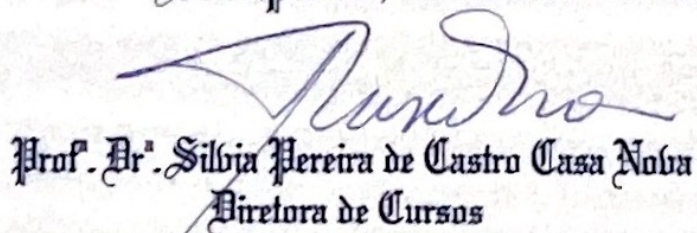 Profª. Drª. Silvia Pereira de Castro Casa Nova
Diretora de Cursos